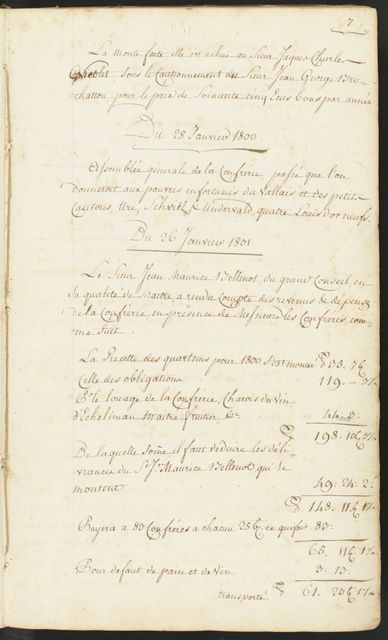 7.
La Monte faite elle est echue au Sieur Jaques Charle
sous le Cautionnement du Sieur Jean George Bro-
-chatton pour le prix de Soixante cinq Ecus bons par année
Du 28 Janvier 1800.
Assemblée generale de la Confrerie, passé que l'on
donneroit aux pauvres infortunés du Vallais et des petits
Cantons, Uri, Schvitz & Undervald, quatre Louis d'or neufs.
Du 26 Janvier 1801
Le Sieur Jean Maurice Bellenot, du grand Conseil, en
sa qualité de Maitre, a rendu Compte des revenus & depens
de la Confrerie en presence de Messieurs les Confréres, com-
-me suit.
La Recette des quartons pour 1800 s'est montée 35. 7
Celle des obligations 119. —
louage de la Confrerie, Charois du vin
d'Echeliman traitre fruitier &c. 44: 3:
198: 10
De laquelle somme il faut deduire les déli-
vrances du Sr J. Maurice Bellenot qui se
montent 49: 24: 2:
148. 11
Payera à 83 Confréres à chacun 25 ce qui fait 83:
65. 11
Pour defaut de pain et de vin 3: 13:
transporté 61. 23